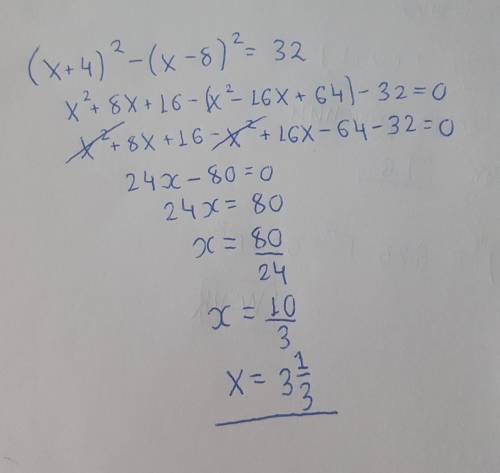 (x+4)² - (x-8)² = 32
x² + 8x + 16 - (x² - 16x + 64) - 32 = 0
x² + 8x + 16 - x² + 16x - 64 - 32 = 0
24x - 80 = 0
24x = 80
x = 80/24
x = 10/3
x = 3 1/3